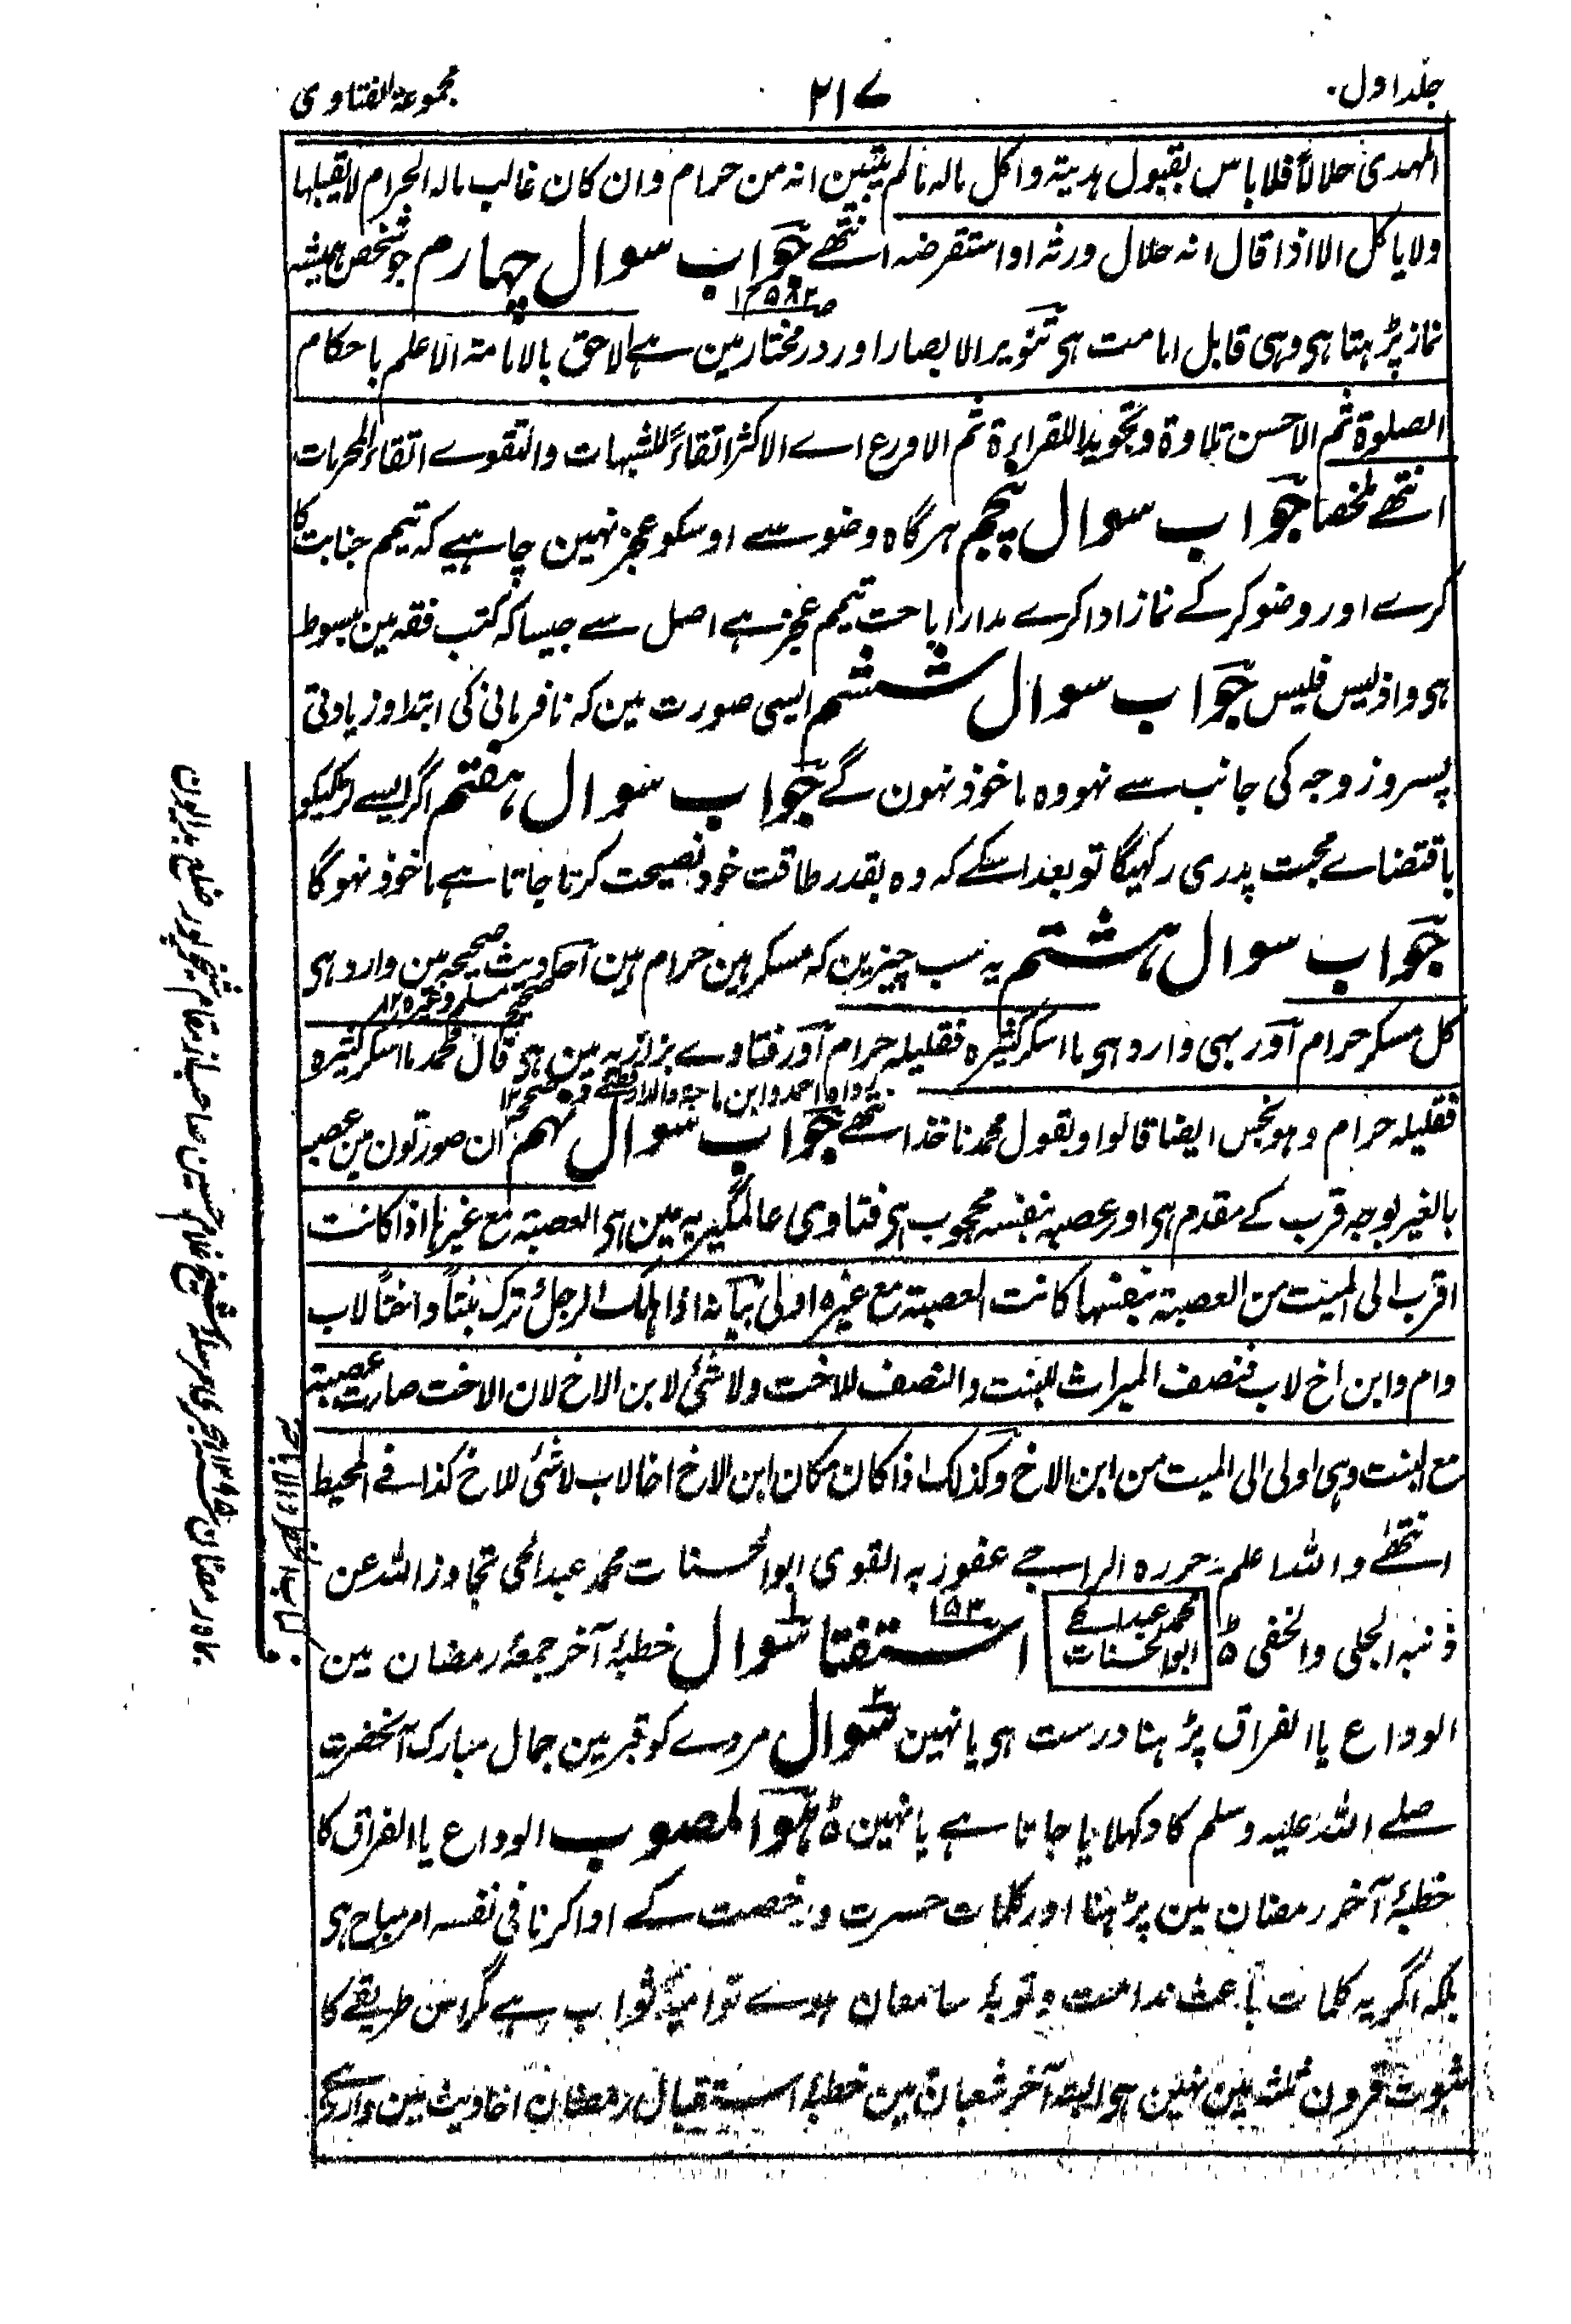 جلد اول
۲۱۷
مجموعۃ الفتاوی
المہدی حلالاً فلا باس بقبول ہدیتہ و اکل مالہ مالم یتبین انہ من حرام وان کان غالب مالہ الحرام لا یقبلہا
ولا یاکل الا اذا قال انہ حلال ورثہ او استقرضہ انتہے جواب سوال چہارم جو شخص ہمیشہ
نماز پڑہتا ہی وہی قابل امامت ہی تنویر الابصار اور درمختار مین ہے الاحق بالامامۃ الاعلم باحکام
الصلوۃ ثم الاحسن تلاوۃ وتجویدا للقراءۃ ثم الاورع اے الاکثر اتقاءً للشبہات والتقوے اتقاء المحرمات
انتہے ملخصا جواب سوال پنجم ہر گاہ وضو سے اوسکو عجز نہین چاہیے کہ تیمم جنابت کا
کرے اور وضو کرکے نماز ادا کرے مدار اباحت تیمم عجز ہے اصل سے جیسا کہ کتب فقہ مین مبسوط
ہی واذ لیس فلیس جواب سوال ششم ایسی صورت مین کہ نافرمانی کی ابتدا و زیادتی
پسر و زوجہ کی جانب سے نہو وہ ماخوذ نہون گے جواب سوال ہفتم اگر ایسے لڑکیکو
باقتضاے محبت پدری رکہیگا تو بعد اسکے کہ وہ بقدر طاقت خود نصیحت کرتا جاتا ہے ماخوذ نہوگا
جواب سوال ہشتم یہ سب چیزین کہ مسکر ہین حرام ہین احادیث صحیحہ مین وارد ہی
صحیح مسلم وغیرہ ۱۲
کل مسکر حرام اور بہی وارد ہی ما اسکر کثیرہ فقلیلہ حرام اور فتاوے بزازیہ مین ہی قال محمد ما اسکر کثیرہ
رواہ احمد و ابن ماجہ والدارقطنی وصححہ ۱۲
فقلیلہ حرام وہو نجس ایضا قالوا وبقول محمد ناخذ انتہے جواب سوال نہم ان صورتون مین عصبہ
بالغیر بوجہ قرب کے مقدم ہی اور عصبہ بنفسہ محجوب ہی فتاوی عالمگیریہ مین ہی العصبۃ مع غیرہا اذا کانت
اقرب الی المیت من العصبۃ بنفسہا کانت العصبۃ مع غیرہ اولی بیانہ اذا ہلک الرجل ترک بنتاً و اختاً لاب
وام وابن اخ لاب فنصف المیراث للبنت والنصف للاخت ولا شئ لابن الاخ لان الاخت صارت عصبۃ
مع البنت وہی اولی الی المیت من ابن الاخ وکذلک اذا کان مکان ابن الاخ اخا لاب لا شئ للاخ کذا فے المحیط
انتہے واللہ اعلم حررہ الراجے عفو ربہ القوی ابو الحسنات محمد عبد الحی تجاوز اللہ عن
ذنبہ الجلی والخفی
محمد عبد الحے
ابو الحسنات
استفتا ۱۵۳ سوال خطبۂ آخر جمعۂ رمضان مین
الوداع یا الفراق پڑہنا درست ہی یا نہین سوال مردے کو قبر مین جمال مبارک آنحضرت
صلے اللہ علیہ وسلم کا دکہلایا جاتا ہے یا نہین ہو المصوب الوداع یا الفراق کا
خطبۂ آخر رمضان مین پڑہنا اور کلمات حسرت و رخصت کے ادا کرنا فی نفسہ امر مباح ہی
بلکہ اگر یہ کلمات باعث ندامت و توبۂ سامعان ہوے تو امید ثواب ہے مگر اس طریقے کا
ثبوت قرون ثلثہ مین نہین ہی البتہ آخر شعبان مین خطبۂ استقبال رمضان احادیث مین وارد ہے